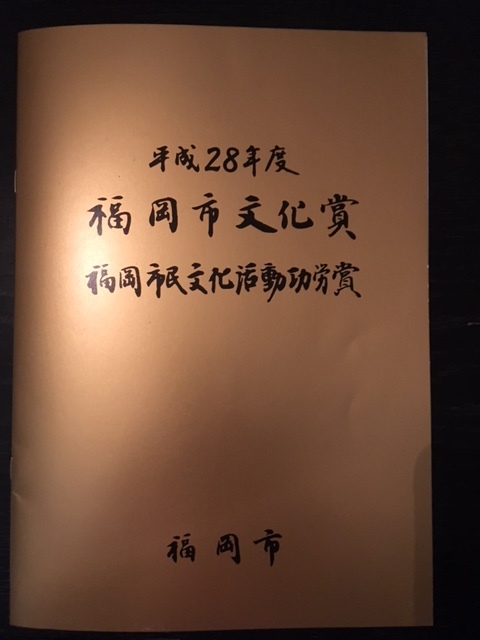 平成28年度
福岡市文化賞
福岡市民文化活動功労賞
福岡市